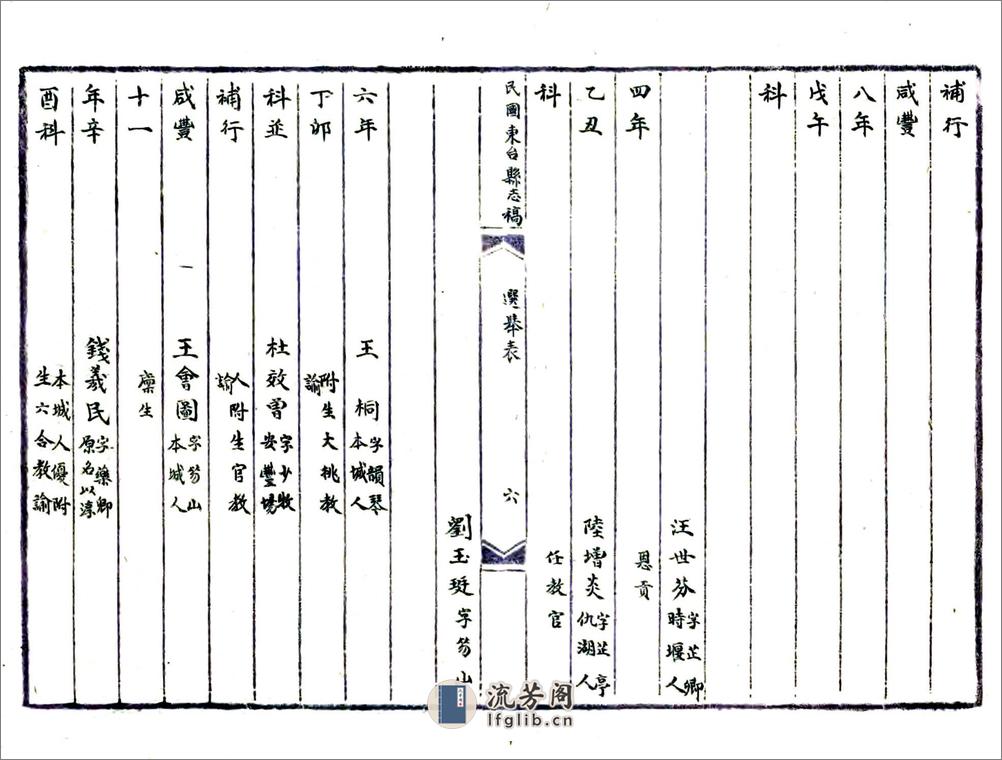 補行
咸豐
八年
戊午
科
汪世芬字芷卿時堰人
四年
恩貢
乙丑
陸增炎字芷亭仇湖人
科
任教官
民國東台縣志稿
選舉表
六
劉玉珽字笏山
六年
王桐字韻琴本城人
丁卯
附生大挑教諭
科並
杜效曾字少牧安豐場
補行
人附生官教諭
咸豐
王會圖字笏山本城人
十一
廩生
年辛
錢羲民字藥卿原名以淳
酉科
本城人優附生六合教諭
流芳阁
lfglib.cn